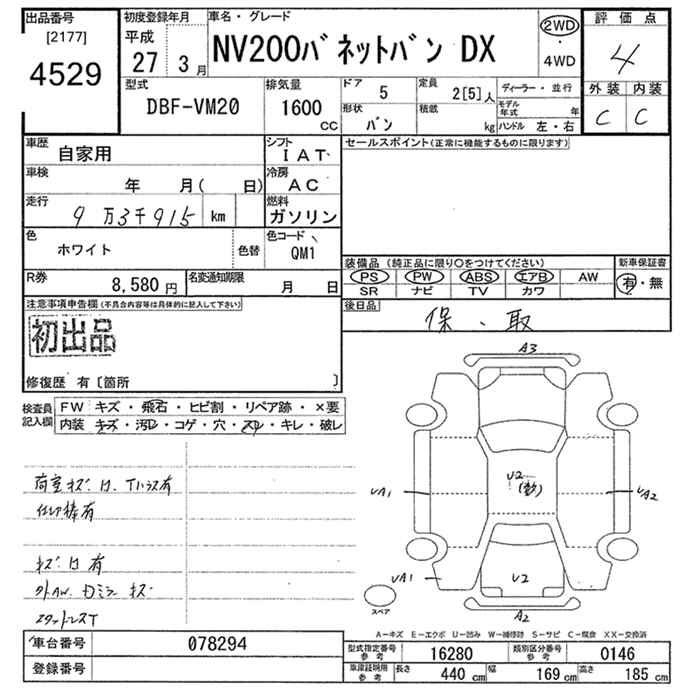 出品番号
[2177]
4529
初度登録年月
平成
27 3 月
車名・グレード
NV200バネットバン DX
2WD
・
4WD
評価点
4
外装 内装
C C
型式
DBF-VM20
排気量
1600
CC
ドア
5
定員
2[5]人
形状
バン
積載
kg
ディーラー・並行
モデル年式 年
ハンドル 左・右
車歴
自家用
シフト
IAT
車検
年 月( 日)
冷房
AC
走行
9万3千915 km
燃料
ガソリン
色
ホワイト
色替
色コード
QM1
R券
8,580 円
名変通知期限
月 日
セールスポイント(正常に機能するものに限ります)
装備品 (純正品に限り○をつけてください)
PS PW ABS エアB AW
SR ナビ TV カワ
新車保証書
有・無
後日品
保、取
注意事項申告欄(不具合内容等は具体的に記入して下さい)
初出品
修復歴 有〔箇所 〕
検査員記入欄
FW キズ・飛石・ヒビ割・リペア跡・×要
内装 キズ・汚レ・コゲ・穴・スレ・キレ・破レ
荷室キズ
有
キズ
有
キズ
A3
U2
UA1
UA2
UA1
U2
A2
スペア
A－キズ E－エクボ U－凹み W－補修跡 S－サビ C－腐食 XX－交換済
車台番号
078294
登録番号
型式指定番号 参考
16280
類別区分番号 参考
0146
車庫証明用 参考
長さ 440 cm
幅 169 cm
高さ 185 cm